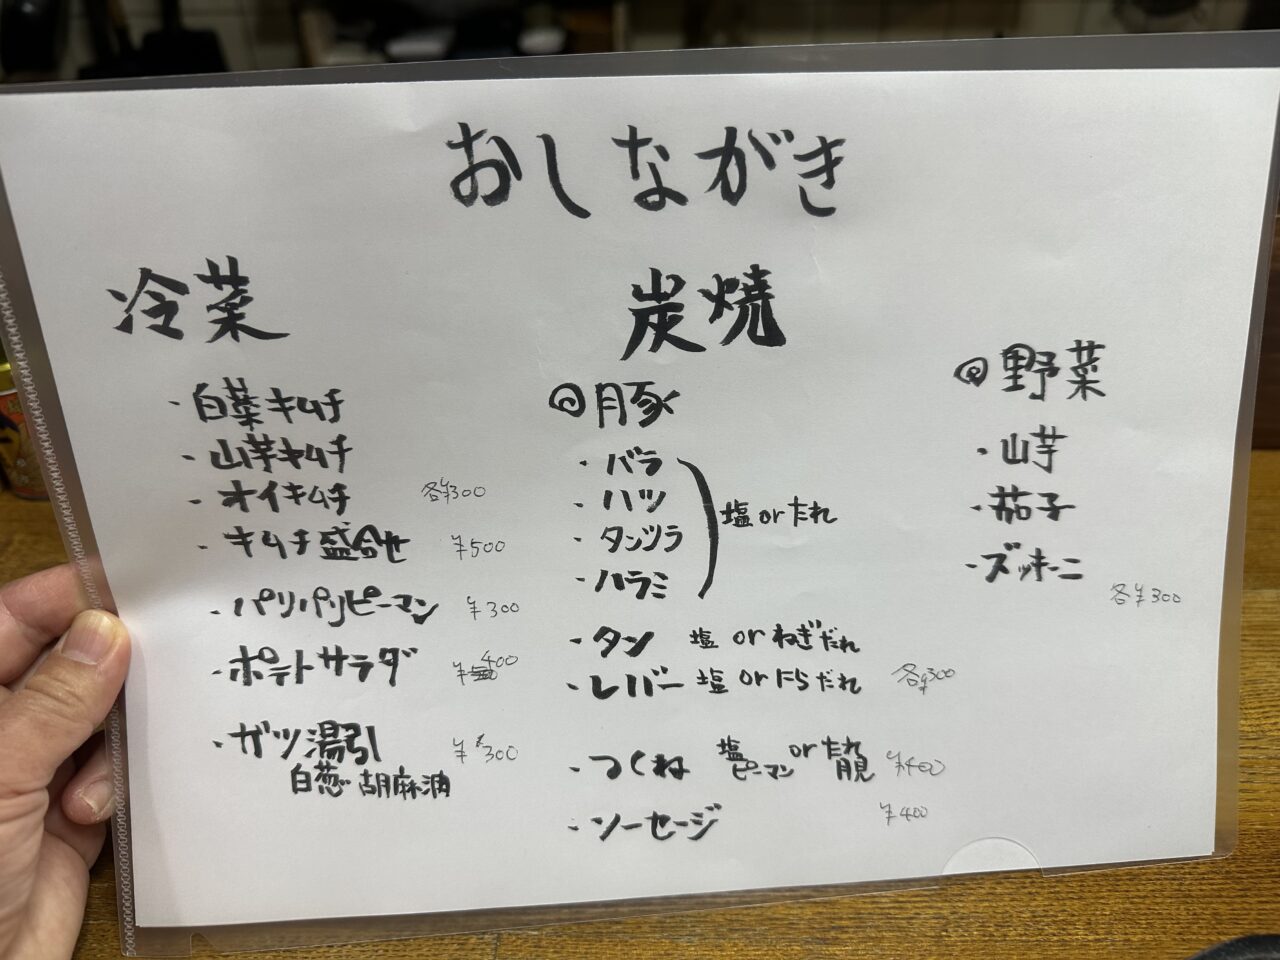 おしながき
冷菜
・白菜キムチ
・山芋キムチ
・オイキムチ 各¥300
・キムチ盛合せ ¥500
・パリパリピーマン ¥300
・ポテトサラダ ¥400
・ガツ湯引 ¥300
白葱 胡麻油
炭焼
◎豚
・バラ
・ハツ
・タンツラ
・ハラミ
塩orたれ
・タン 塩 or ねぎだれ
・レバー 塩 or にらだれ 各¥300
・つくね 塩ピーマン or たれ月見 ¥400
・ソーセージ ¥400
◎野菜
・山芋
・茄子
・ズッキーニ
各¥300